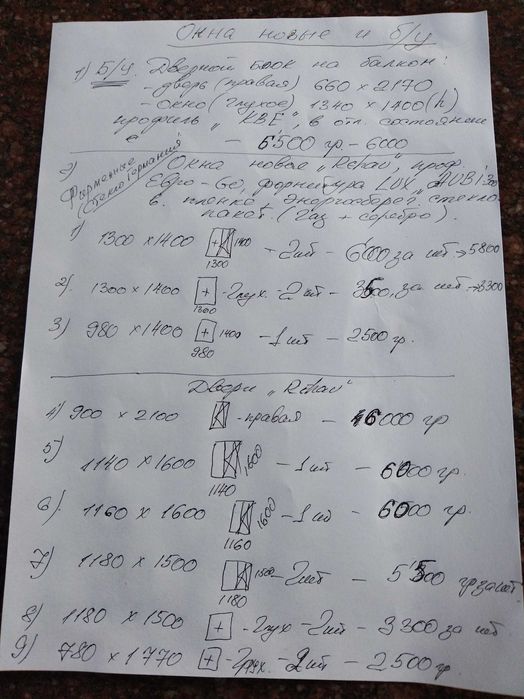 Окна новые и б/у
1) Б/у. Дверной блок на балкон:
- дверь (правая) 660 х 2170
- окно (глухое) 1340 х 1400 (h)
профиль "КВЕ", в отл. состоянии
- 6500 гр - 6000
2) Окна новые "Rehau", проф.
Фирменные (Стекло Германия)
Евро-60, фурнитура "AUBI"
в пленке, энергосберег. стекло-
пакет. (газ + серебро).
1) 1300 х 1400 1400 - 2шт - 6000 за шт → 5800
1300
2) 1300 х 1400 - глух. - 2 шт - 3500, за шт → 3300
1300
3) 980 х 1400 1400 - 1 шт - 2500 гр.
980
Двери "Rehau"
4) 900 х 2100 - правая - 6000 гр
5) 1140 х 1600 1600 - 1 шт - 6000 гр.
1140
6) 1160 х 1600 1600 - 1 шт - 6000 гр.
1160
7) 1180 х 1500 1500 - 2шт - 5500 гр за шт.
1180
8) 1180 х 1500 - глух - 2шт - 3300 за шт
9) 780 х 1770 - глух. - 2шт - 2500 гр.